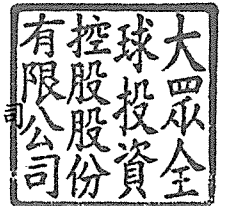 大眾全
球投資
控股股份
有限公司
司